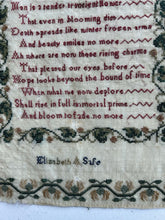 Man is a tender transient flower
That even in blooming dies
Death spreads like winter frozen arms
And beauty smiles no more
Ah where are now those rising charms
That pleased our eyes before
Hope looks beyond the bound of time
When what we now deplore
Shall rise in full immortal prime
And bloom to fade no more
Elizabeth A Sife